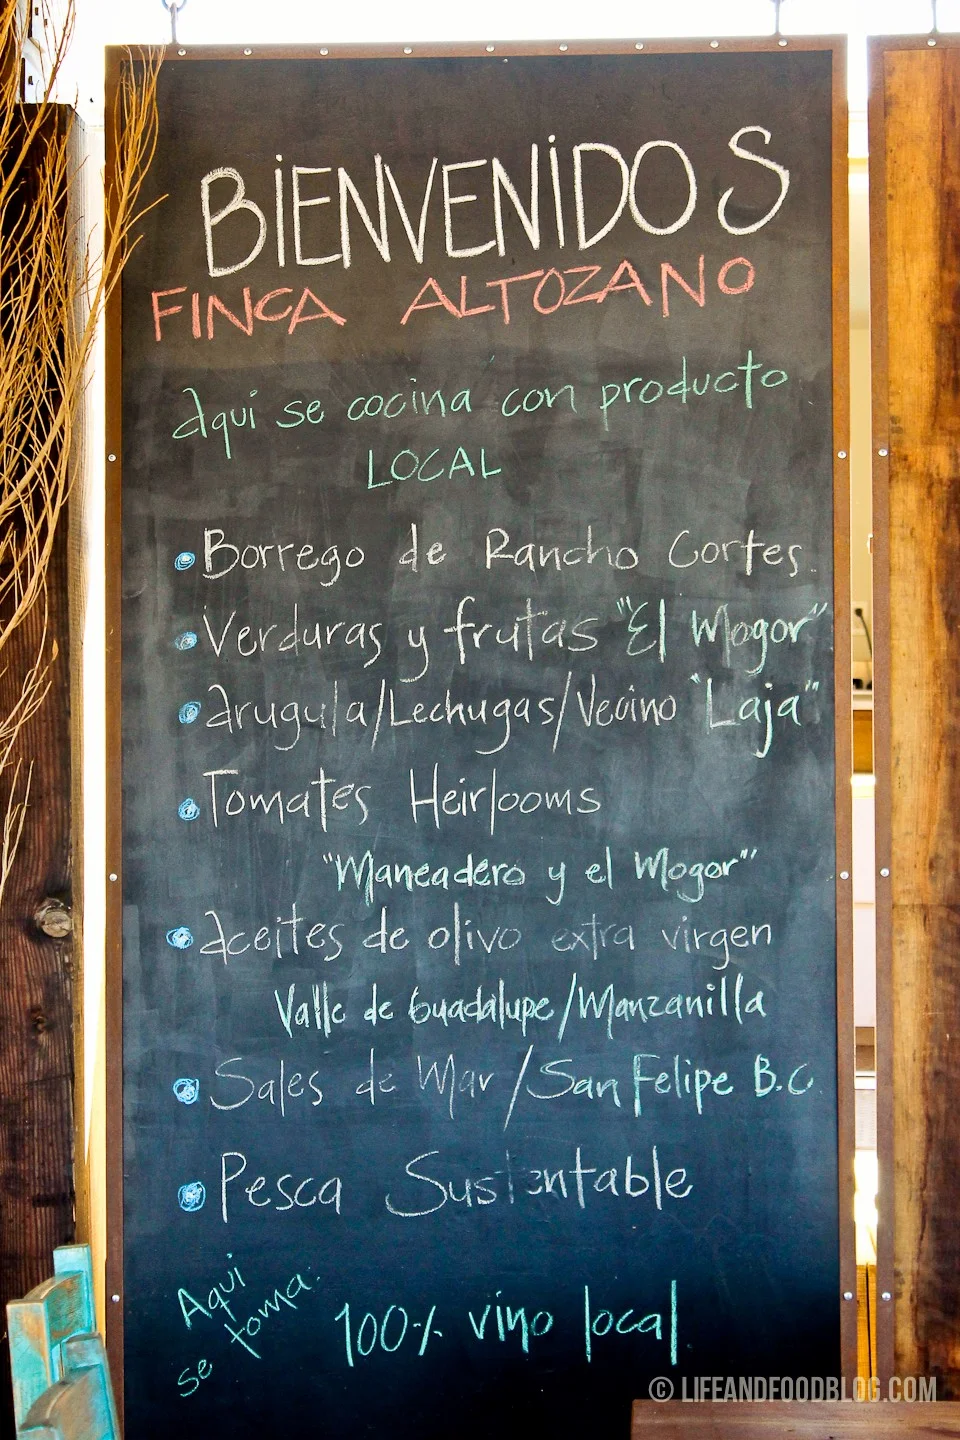 BiENVENiDOS
FINCA ALTOZANO
Aqui se cocina con producto
LOCAL
Borrego de Rancho Cortes.
Verduras y frutas "El Mogor"
Arugula/Lechugas/Vecino "Laja"
Tomates Heirlooms
"Maneadero y el Mogor"
Aceites de olivo extra virgen
Valle de Guadalupe/Manzanilla
Sales de Mar/San Felipe B.C.
Pesca Sustentable
Aqui
se toma:
100% vino local
© LIFEANDFOODBLOG.COM